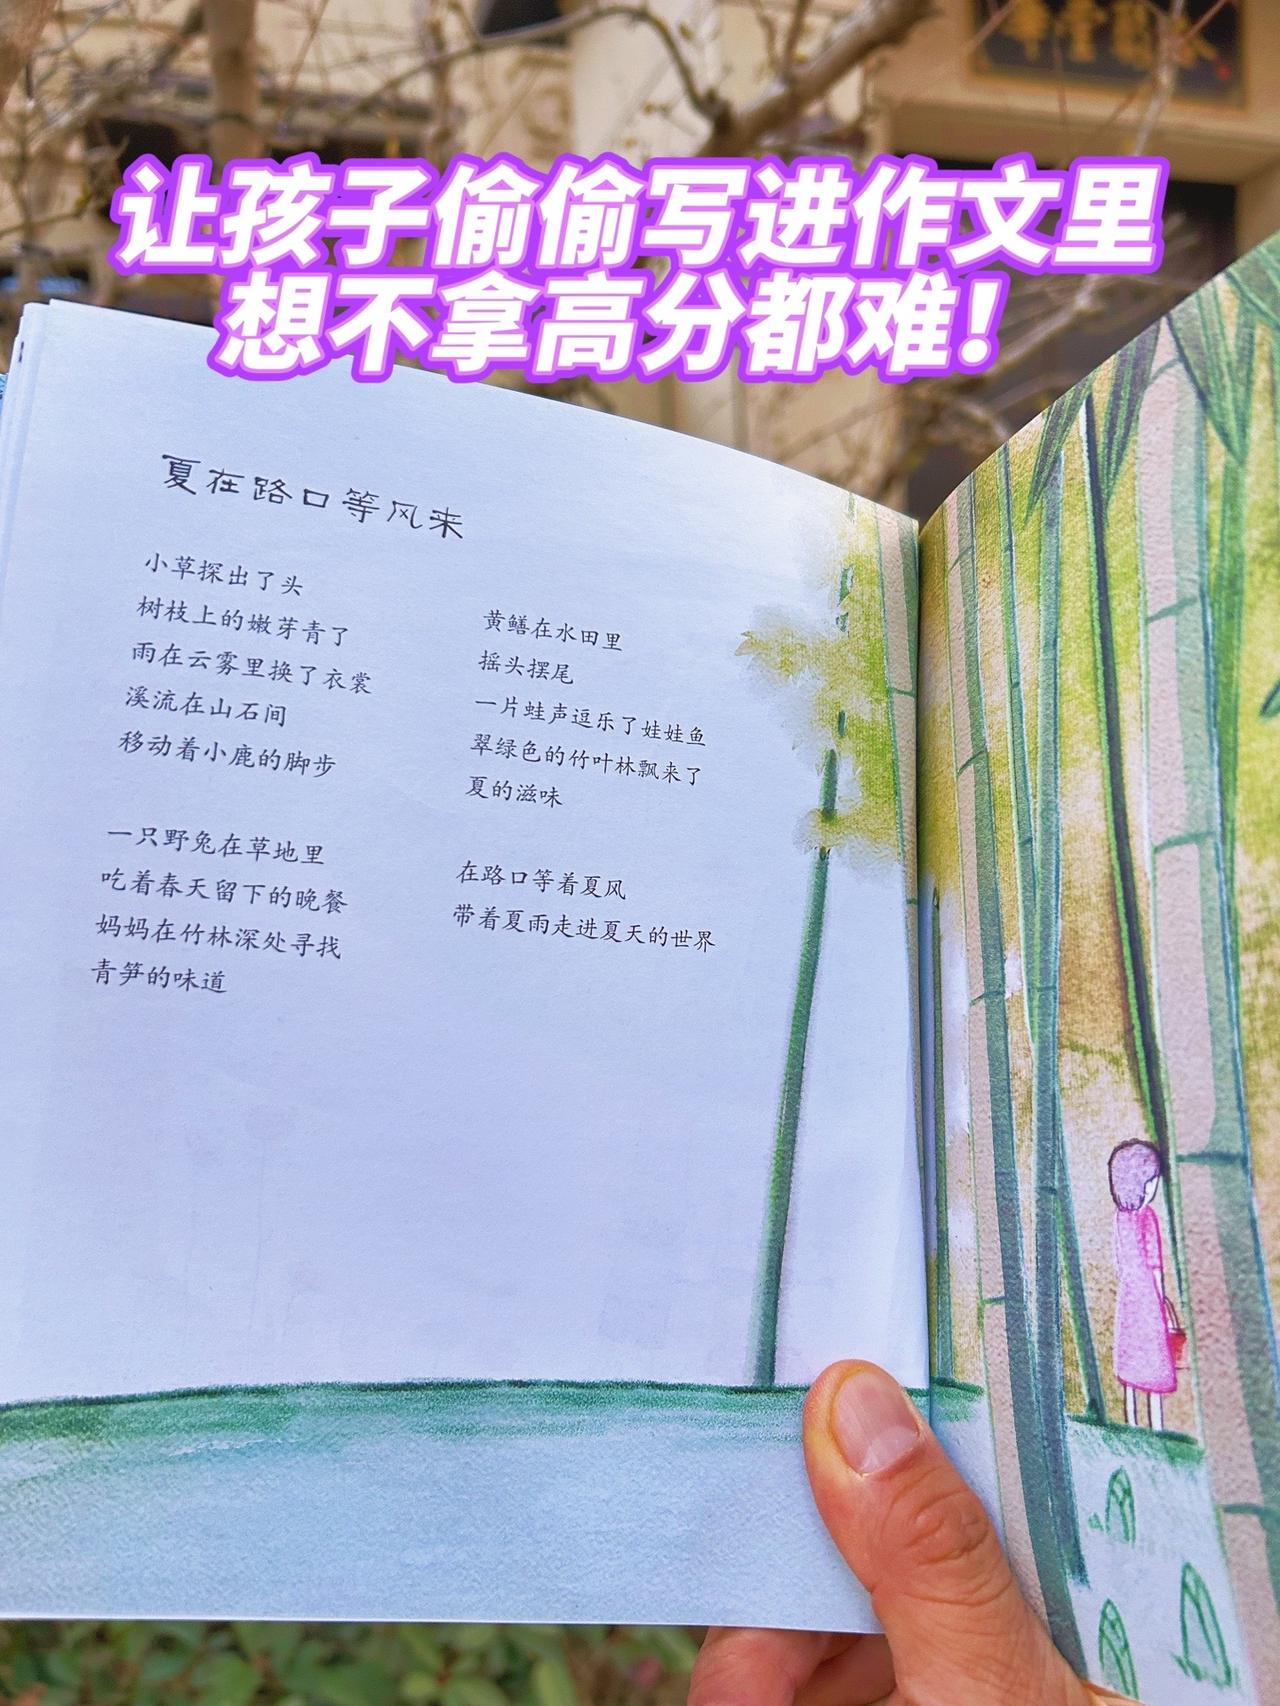 让孩子偷偷写进作文里
想不拿高分都难！
夏在路口等风来
小草探出了头
树枝上的嫩芽青了
雨在云雾里换了衣裳
溪流在山石间
移动着小鹿的脚步
一只野兔在草地里
吃着春天留下的晚餐
妈妈在竹林深处寻找
青笋的味道
黄鳝在水田里
摇头摆尾
一片蛙声逗乐了娃娃鱼
翠绿色的竹叶林飘来了
夏的滋味
在路口等着夏风
带着夏雨走进夏天的世界